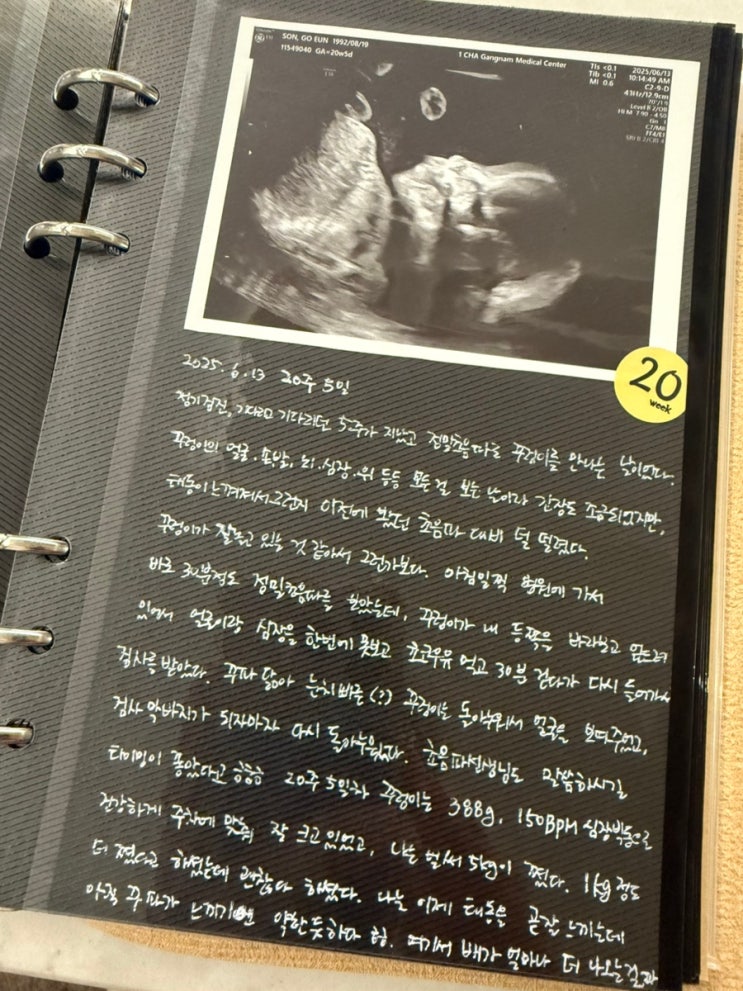 SON, GO EUN 1992/08/19
11549040 GA=20w5d
1 CHA Gangnam Medical Center
TIs <0.1 2025/06/13
Tib <0.1 10:14:49 AM
MI 0.6 C2-9-D
41Hz/12.9cm
70°/1.9
Level B 2/OB
HI M 7.90 - 4.50
Gn 1
C7/M8
FF4/E1
SRI II 2/CRI 4
20
week
2025. 6. 13 20주 5일
정기검진, 기다리고 기다리던 5주가 지났고 정밀초음파로 꾸렁이를 만나는 날이었다.
꾸렁이의 얼굴. 손,발, 뇌. 심장. 위 등등 모든 걸 보는 날이라 긴장도 조금 되었지만,
태동이 느껴져서 그런지 이전에 봤던 초음파 대비 덜 떨렸다.
꾸렁이가 잘 놀고 있는 것 같아서 그런가보다. 아침일찍 병원에 가서
바로 30분정도 정밀초음파를 보았는데, 꾸렁이가 내 등쪽을 바라보고 엎드려
있어서 얼굴이랑 심장을 한번에 못보고 초코우유 먹고 30분 걷다가 다시 들어가서
검사를 받았다. 꾸파 닮아 눈치빠른(?) 꾸렁이는 돌아누워서 얼굴을 보여주었고,
검사 막바지가 되자마자 다시 돌아누웠다. 초음파선생님도 말씀하시길
타이밍이 좋았다고 ㅎㅎㅎ 20주 5일차 꾸렁이는 388g, 150BPM 심장박동으로
건강하게 주차에 맞춰 잘 크고 있었고, 나는 벌써 5kg이 쪘다. 1kg 정도
더 쪘다고 하셨는데 괜찮다 하셨다. 나는 이제 태동을 곧잘 느끼는데
아직 꾸파가 느끼기엔 약한듯하다 힝. 여기서 배가 얼마나 더 나오는걸까